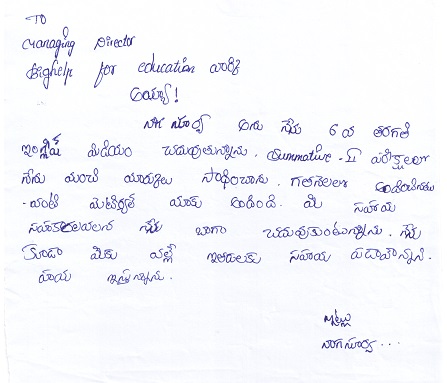 To
Managing Director
Bighelp for education వారికి
అయ్యా!
నాగ సూర్య అను నేను 6 వ తరగతి
ఇంగ్లీష్ మీడియం చదువుతున్నాను. Summative - II పరీక్షలలో
నేను మంచి మార్కులు సాధించాను. గతనెలలో
వంటి మెటీరియల్ మాకు అందింది. మీ సహాయ
సహకారాలవలన నేను బాగా చదువుకుంటున్నాను. నేను
కూడా మీకు వల్లే ఇతరులకు సహాయ పడాలన్నాని.
హామీ ఇస్తున్నాను.
ఇట్లు
నాగసూర్య...